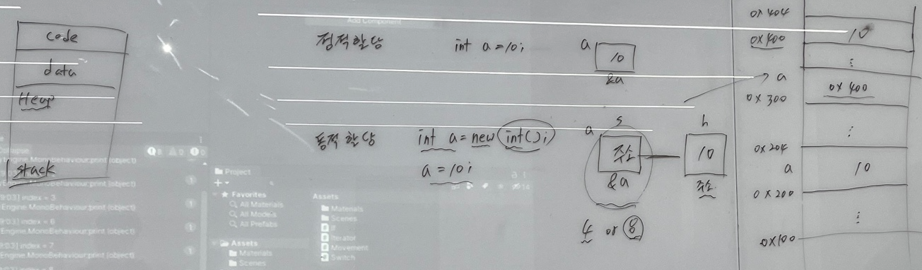 code
data
Heap
stack
정적할당
int a = 10;
a
10
&a
동적할당
int a = new int();
a = 10;
a
s
주소
&a
4 or 8
h
10
주소
0x404
0x400
10
a
0x400
0x300
0x204
a
10
0x200
0x100
Add Component
Project
Favorites
All Materials
All Models
All Prefabs
Assets
Materials
Scenes
Assets
Materials
Scenes
Iterator
Movement
Switch
Collapse
Engine.MonoBehaviour:print (object)
index = 5
Engine.MonoBehaviour:print (object)
index = 6
Engine.MonoBehaviour:print (object)
index = 7
Engine.MonoBehaviour:print (object)